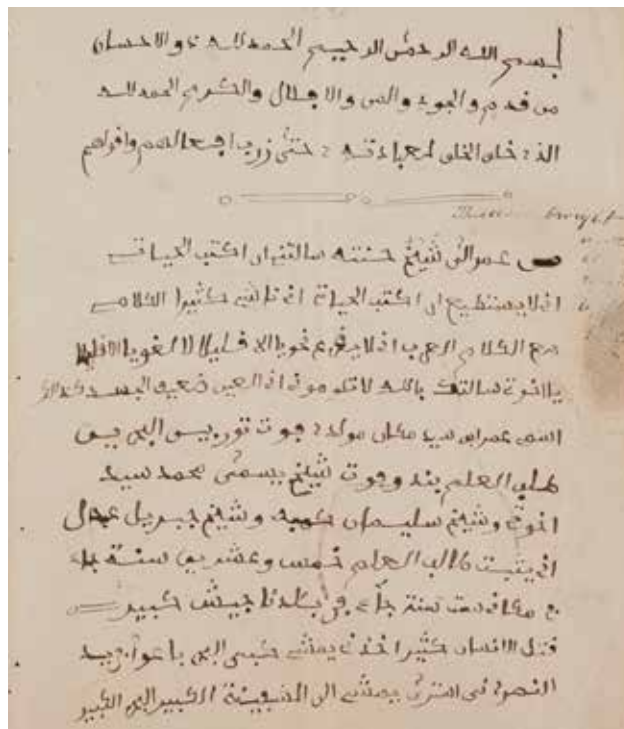 بسم الله الرحمن الرحيم الحمد لله ذو الاحسان
من قديم والجود والمن والاجلال والكرم الحمد لله
الذي خلق الخلق لعبادته حتى افعالهم واقوالهم
من عمر الى شيخ حنته سالتني ان اكتب الحياة
انا لا يستطيع ان اكتب الحياة انا ناسي كثيرا الكلامي
مع الكلام العرب انا لا يقرء نحويا الا قليلا لا لغويا الا قليلا
يا اخوة سالتك بالله لا تلوموني انا العين ضعيف الجسد كذلك
اسمي عمر ابن سيد مكان مولدي فوت تور بين البحرين
طلب العلم بندو فوت شيخ يسمى محمد سيد
اخوي وشيخ سليمان كمبه وشيخ جبريل عبدال
انا يثبت طالب العلم خمس وعشرين سنة جاء
في مكاني ست سنة جاء في بلدنا جيش كبير
قتل الانسان كثيرا اخذني يمشي كبس البحر باعوا بيد
النصرا في اشترى يمشي الى السفينة الكبير البحر الكبير